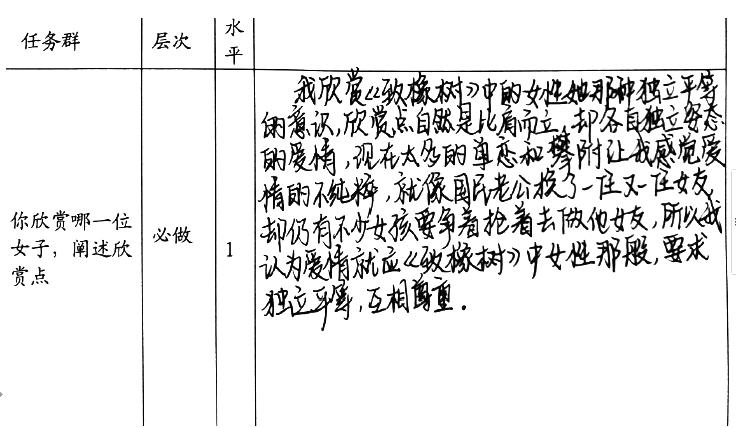 任务群
层次
水平
你欣赏哪一位女子，阐述欣赏点
必做
1
我欣赏《致橡树》中的女性她那种独立平等
的意识，欣赏点自然是比肩而立，却各自独立姿态
的爱情，现在太多的单恋和攀附让我感觉爱
情的不纯粹，就像国民老公换了一任又一任女友，
却仍有不少女孩要争着抢着去做他女友，所以我
认为爱情就应《致橡树》中女性那般，要求
独立平等，互相尊重。